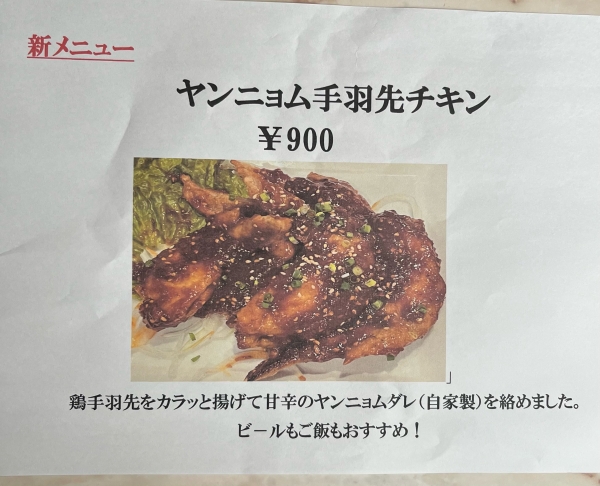 新メニュー
ヤンニョム手羽先チキン
￥900
」
鶏手羽先をカラッと揚げて甘辛のヤンニョムダレ（自家製）を絡めました。
ビールもご飯もおすすめ！